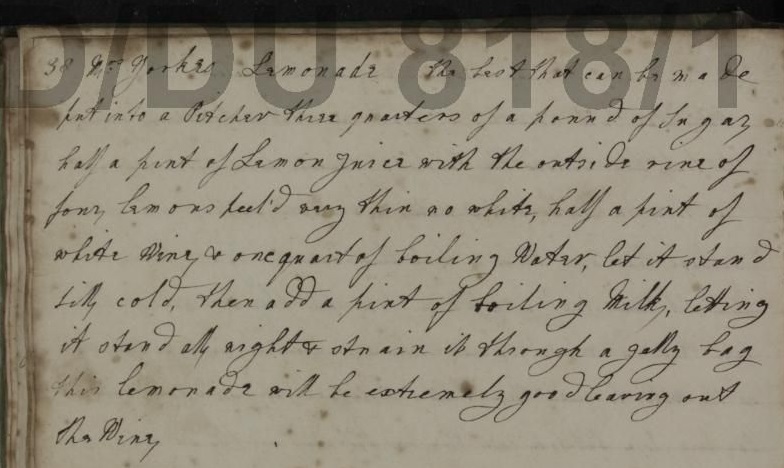 D/DU 818/1
38 Mrs Yorkes Lemonade the best that can be made
put into a Pitcher three quarters of a pound of Sugar
half a pint of Lemon Juice with the outside rine of
four lemons peel'd very thin no white, half a pint of
white Wine, & one quart of boiling Water, let it stand
till cold, then add a pint of boiling Milk, letting
it stand all night & strain it through a gelly bag
this lemonade will be extremely good leaving out
the Wine,